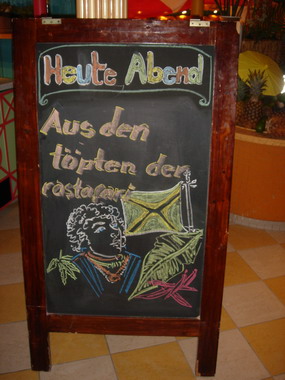 Heute Abend
Aus den
töpten der
rastafari